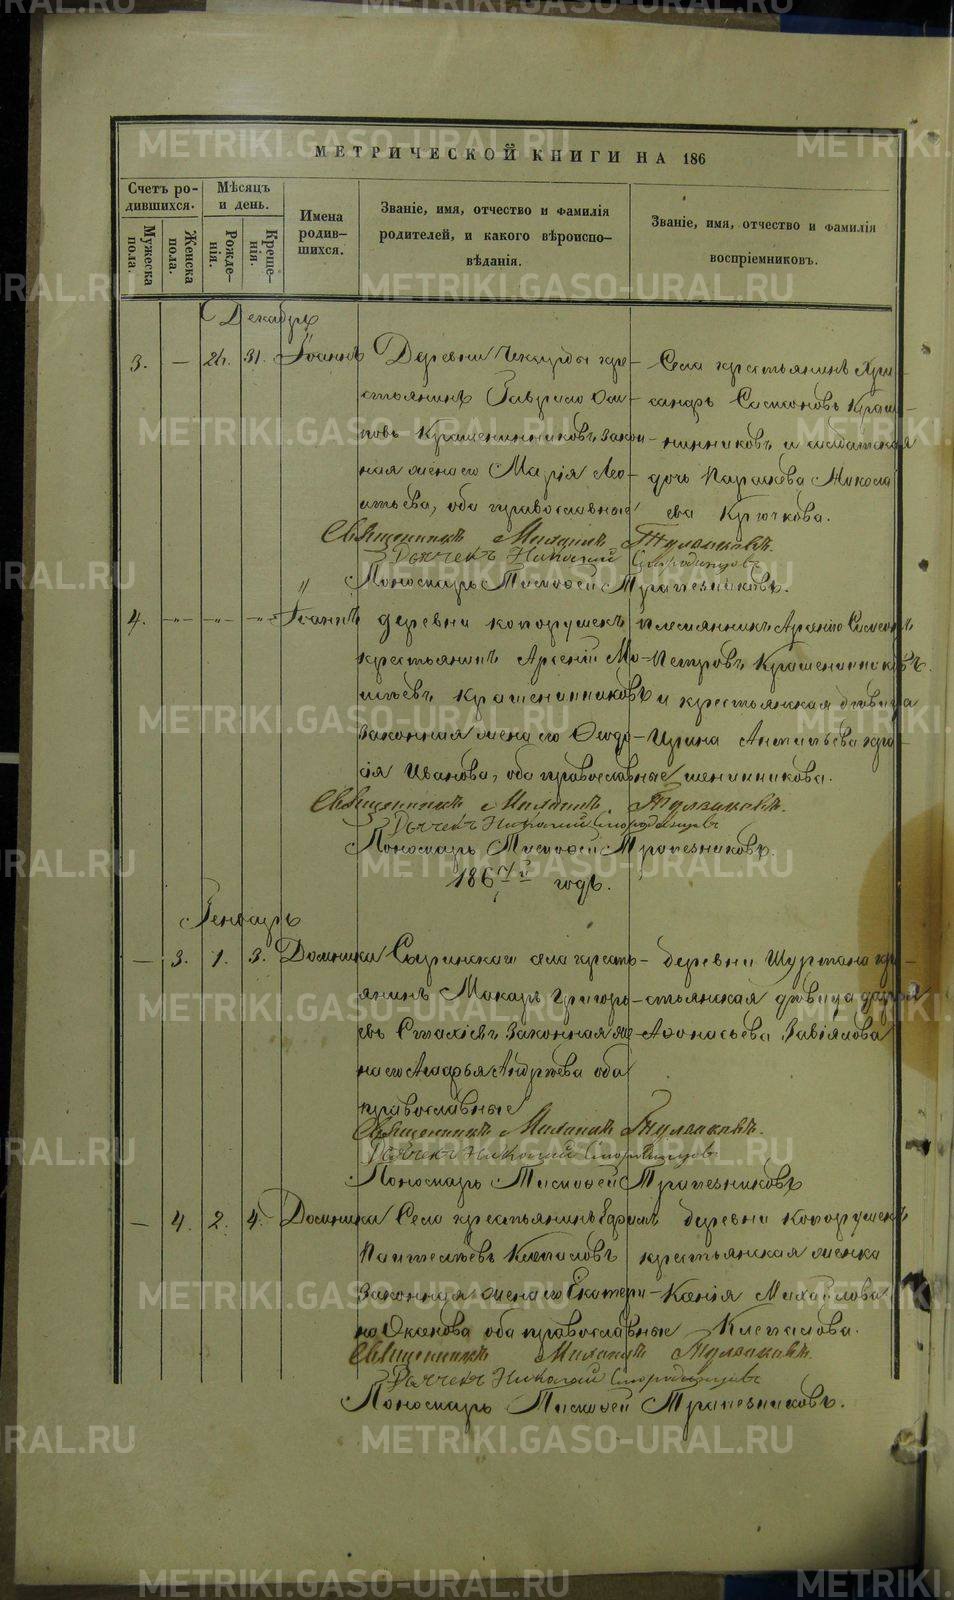 МЕТРИЧЕСКОЙ КНИГИ НА 186
Счетъ родившихся.
Мужеска пола.
Женска пола.
Мѣсяцъ и день.
Рожденія.
Крещенія.
Имена родившихся.
Званіе, имя, отчество и фамилія родителей, и какого вѣроисповѣданія.
Званіе, имя, отчество и фамилія воспріемниковъ.
Декабрь
3. — 24. 31. Іоаннъ
Деревни кре-
стьянинъ Гаврило Оси-
повъ Крашенинниковъ, закон-
ная жена его Марія Лео-
нтьева, оба православные
Села крестьянинъ
Симеоновъ Краше-
нинниковъ и солдатская
дочь Параскева Никола-
ева Крючкова.
Священникъ Михаилъ
Дьячекъ Николай Смородинцовъ
Пономарь Тимофей Трапезниковъ.
4. -"- -"- -"- Іоаннъ
деревни Копорушекъ
крестьянинъ Арсеній Мо-
исѣевъ Крашенинниковъ
законная жена его Ѳеодо-
сія Иванова, оба православные
племянникъ
Петровъ Крашенинниковъ.
и крестьянская дѣвица
Ирина Антипьева Кра-
шенинникова.
Священникъ Михаилъ
Дьячекъ Николай Смородинцовъ
Пономарь Тимофей Трапезниковъ.
1867й годъ.
Генварь
— 3. 1. 3. Домника
Сызинскаго села кресть-
янинъ Макаръ Григорь-
евъ законная же-
на его Марья Андрѣева оба
православные
деревни Шуртана кре-
стьянская дѣвица
Аѳонасьева Завіялова
Священникъ Михаилъ
Дьячекъ Николай Смородинцовъ
Пономарь Тимофей Трапезниковъ
— 4. 2. 4. Домника
Села крестьянинъ Ефимъ
Пантелѣевъ Клепаловъ
законная жена его Екатери-
на оба православные
деревни Копорушекъ
крестьянская женка
Ксенія Михайлова
Клепалова.
Священникъ Михаилъ
Дьячекъ Николай Смородинцовъ
Пономарь Тимофей Трапезниковъ.
METRIKI.GASO-URAL.RU